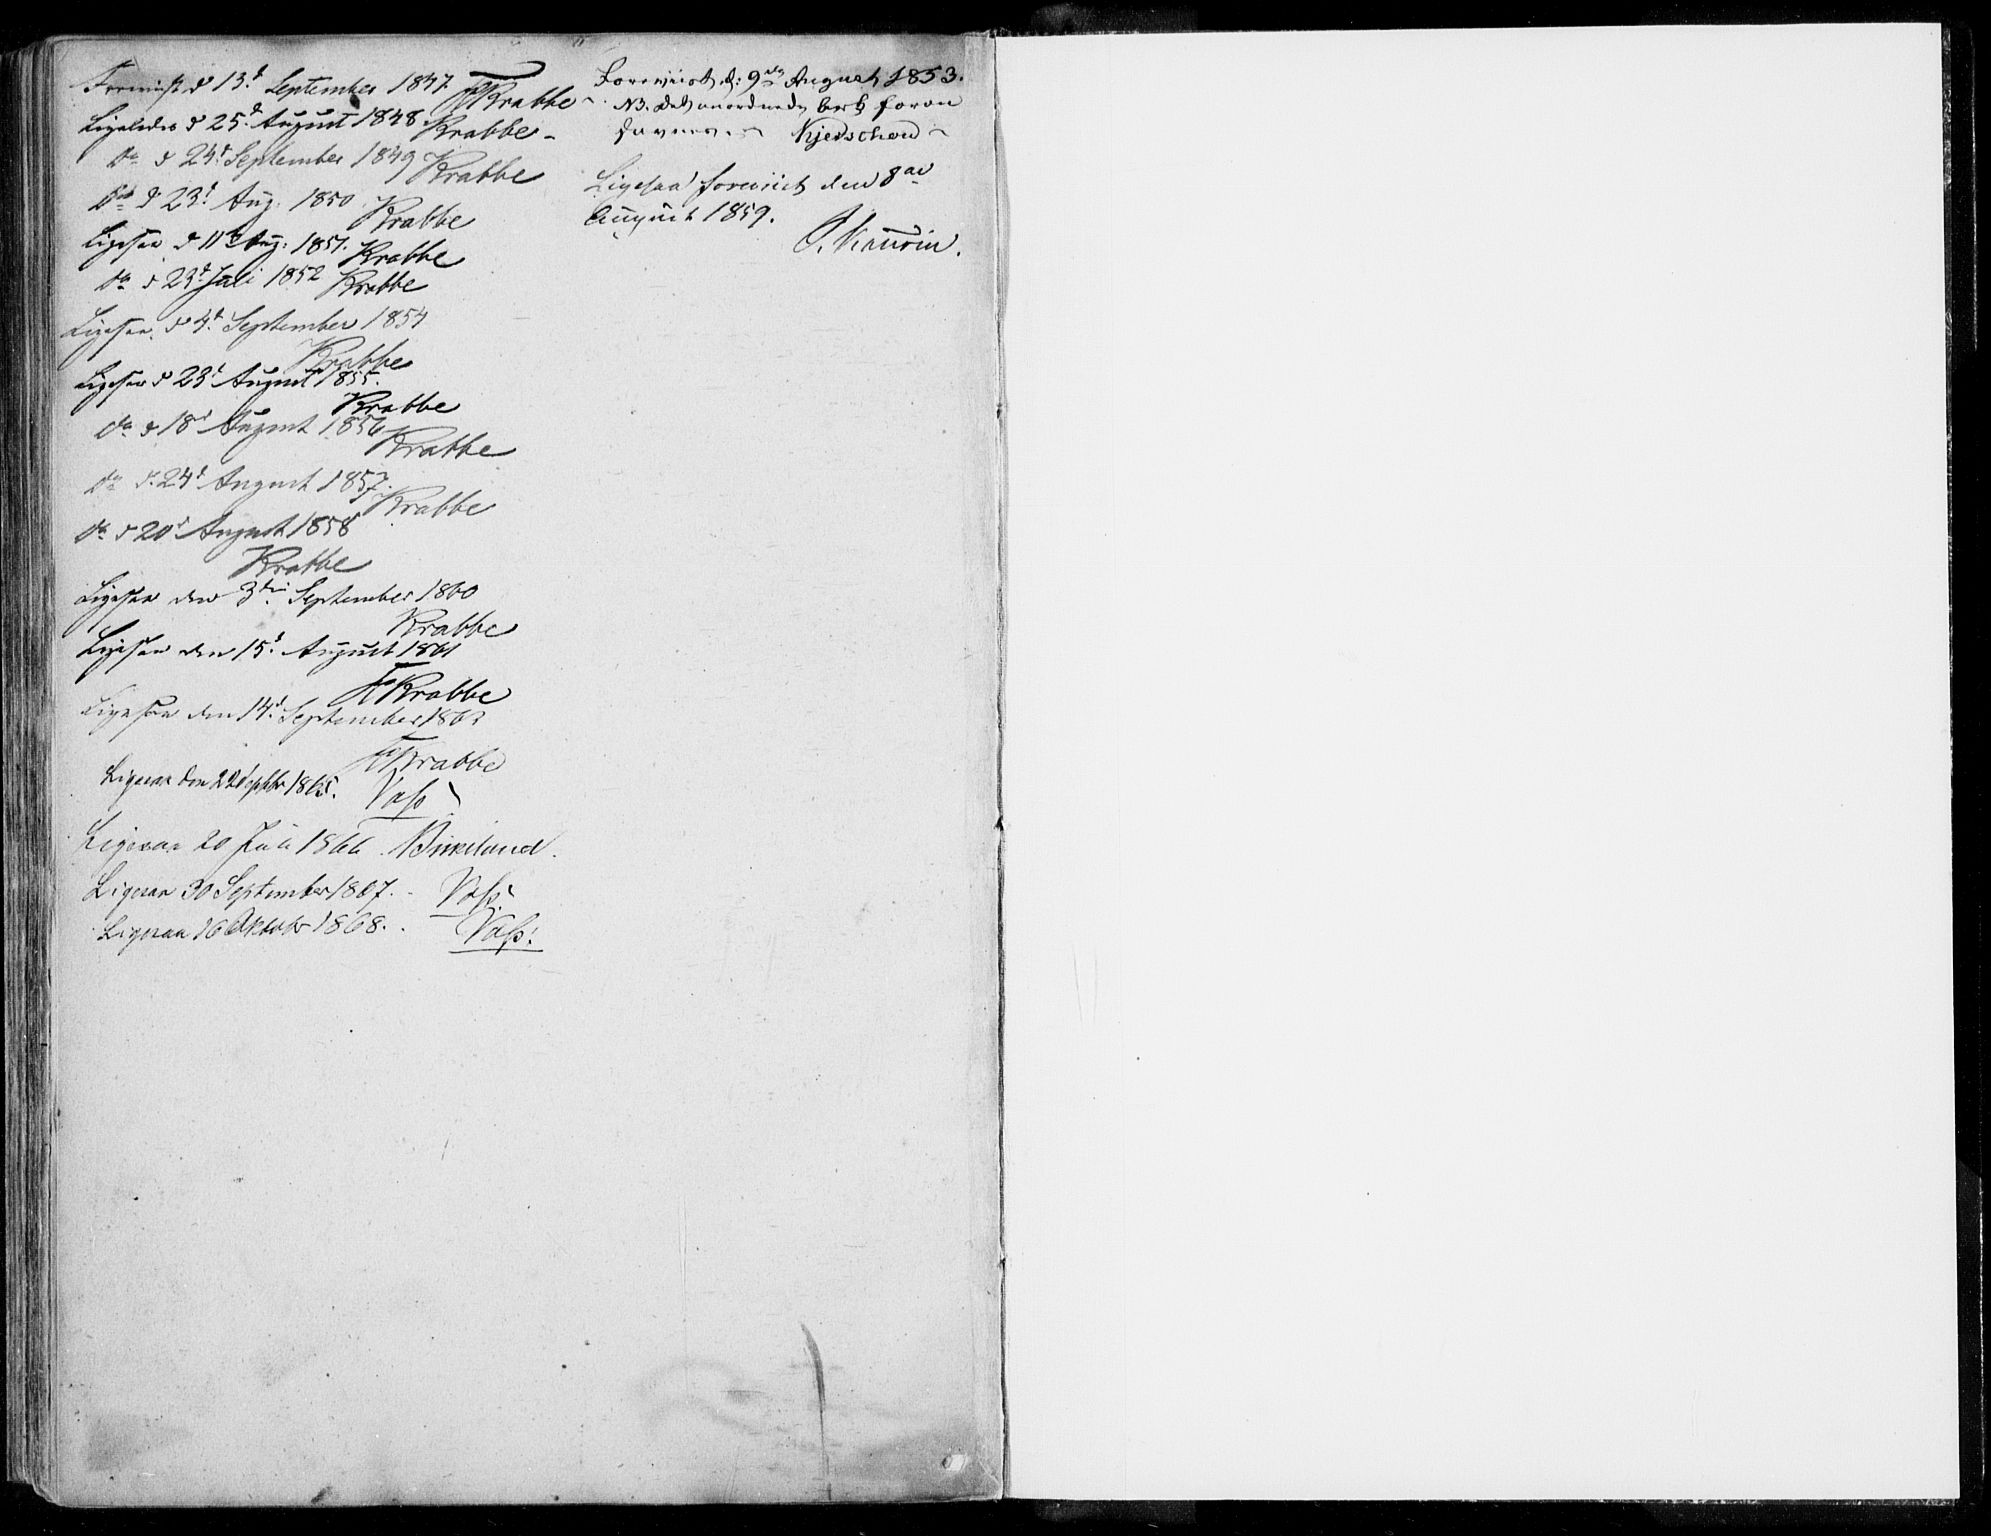 Foreviist d 13d September 1847. FKrabbe
Ligeledes d 25d August 1848. Krabbe
do d 24d September 1849 Krabbe
do d 23d Aug. 1850 Krabbe
Ligesaa d 11te Aug: 1851. Krabbe
do d 23d Juli 1852 Krabbe
Ligesaa d 4d September 1854
Krabbe
Ligesaa d 23d August 1855.
Krabbe
do d 18d August 1856
Krabbe
do d. 24d August 1857.
Krabbe
do d 20d August 1858
Krabbe
Ligesaa den 3die September 1860
Krabbe
Ligesaa den 15d August 1861
FKrabbe
Ligesaa den 14d September 1863
FKrabbe
Ligesaa den 22 Septbr 1865. Vass
Ligesaa 20 Juli 1866. Birkeland.
Ligesaa 30 September 1867. Vass.
Ligesaa 16 Oktober 1868. Vass.
Foreviist d: 9de August 1853.
NB. det anordnede foran
Kjerschow
Ligesaa foreviist den 8de
August 1859.